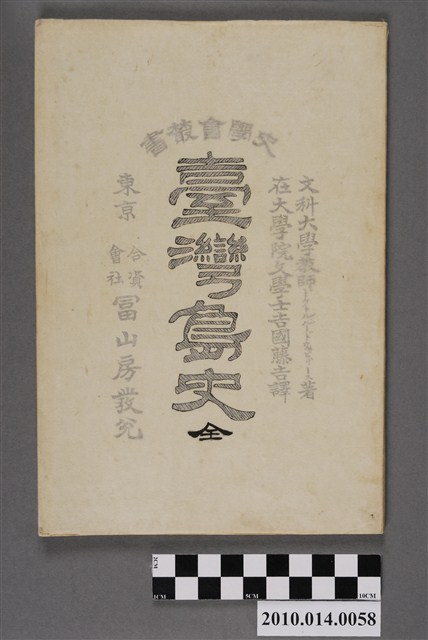 史學會叢書
文科大學敎師ルードヰッヒ、リース著
在大學院文學士吉國藤吉譯
臺灣島史
全
東京
合資
會社
冨山房發兌
2CM
1CM
5CM
10CM
2010.014.0058